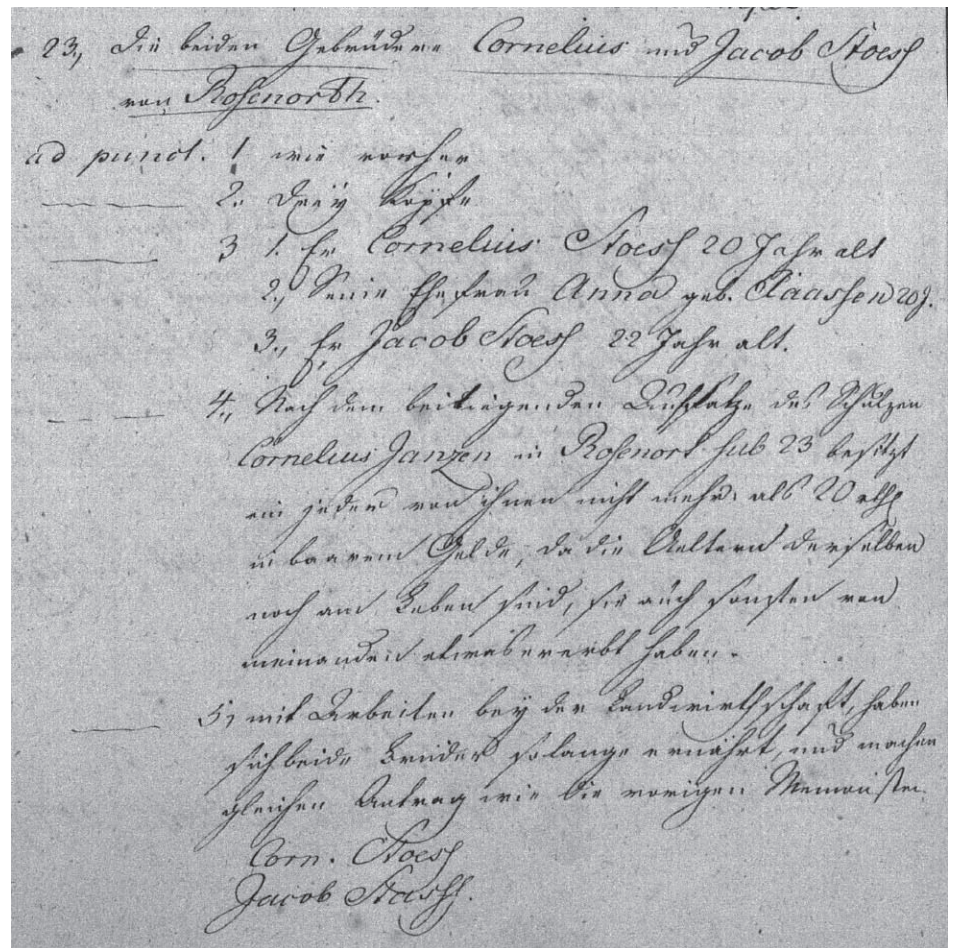 23., Die beiden Gebrüdere Cornelius und Jacob Stoess
von Rosenorth.
ad punct. 1 wie vorher
2. Dreÿ Köpfe
3 1. Er Cornelius Stoess 20 Jahr alt
2., Seine Ehefrau Anna geb. Claassen 20 J.
3., Er Jacob Stoess 22 Jahr alt.
4., Nach dem beiliegenden Aufsatze des Schulzen
Cornelius Janzen in Rosenort sub 23 besitzt
ein jeder von ihnen nicht mehr als 20 rthl
in baarem Gelde, da die Aeltern derselben
noch am Leben sind, sie auch sonsten von
etwas ererbt haben.
5, mit Arbeiten beÿ der Landwirthschaft, haben
sich beide Brüder solange ernährt, und machen
gleichen Antrag wie die vorigen
Corn. Stoess
Jacob Stoess.